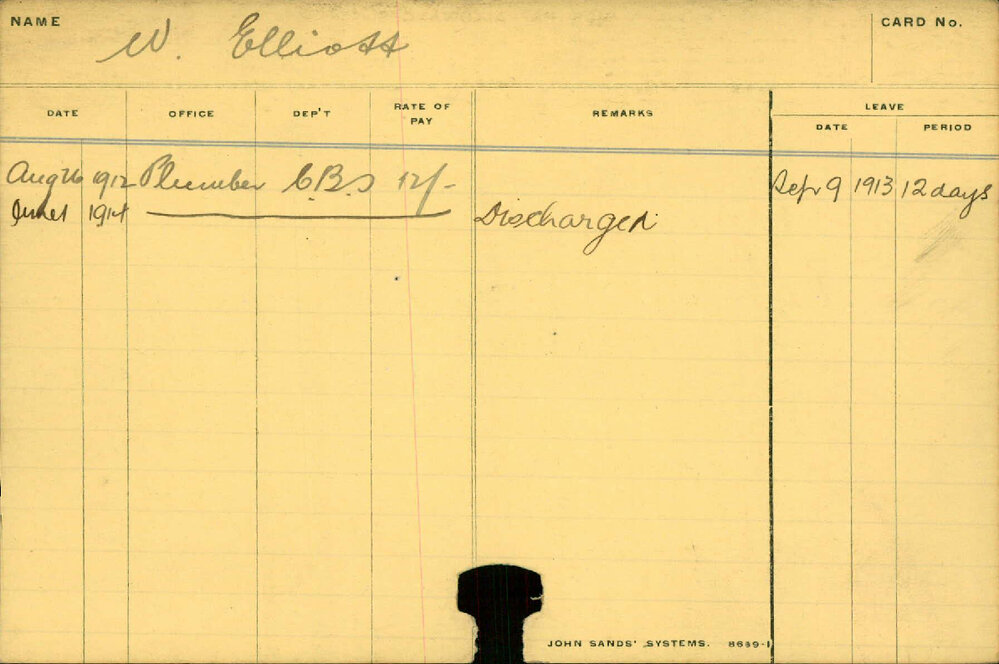 NAME W. Elliott CARD No.
DATE OFFICE DEP'T RATE OF PAY REMARKS LEAVE
DATE PERIOD
Aug 26 1912 Plumber C.B.S 12/- Sepr 9 1913 12 days
June 1 1914 Discharged
JOHN SANDS' SYSTEMS. 8689-1